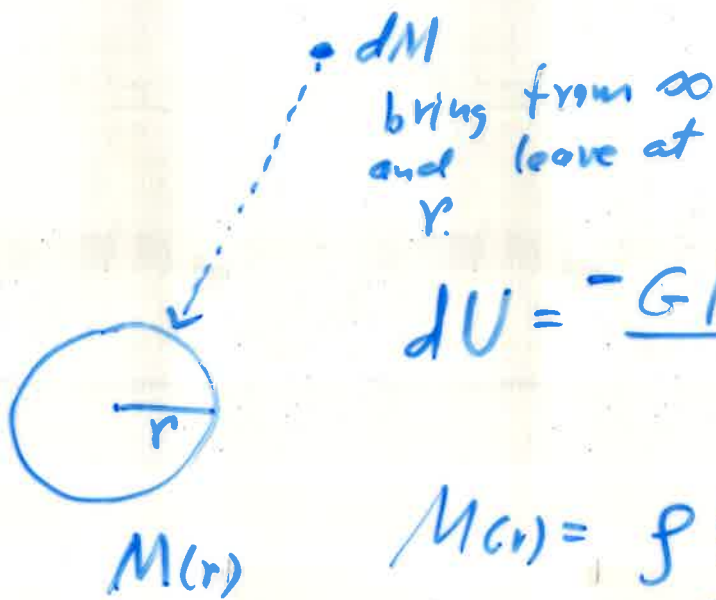 dM
bring from ∞
and leave at
r.
dU = -G
r
M(r)
M(r) = ρ